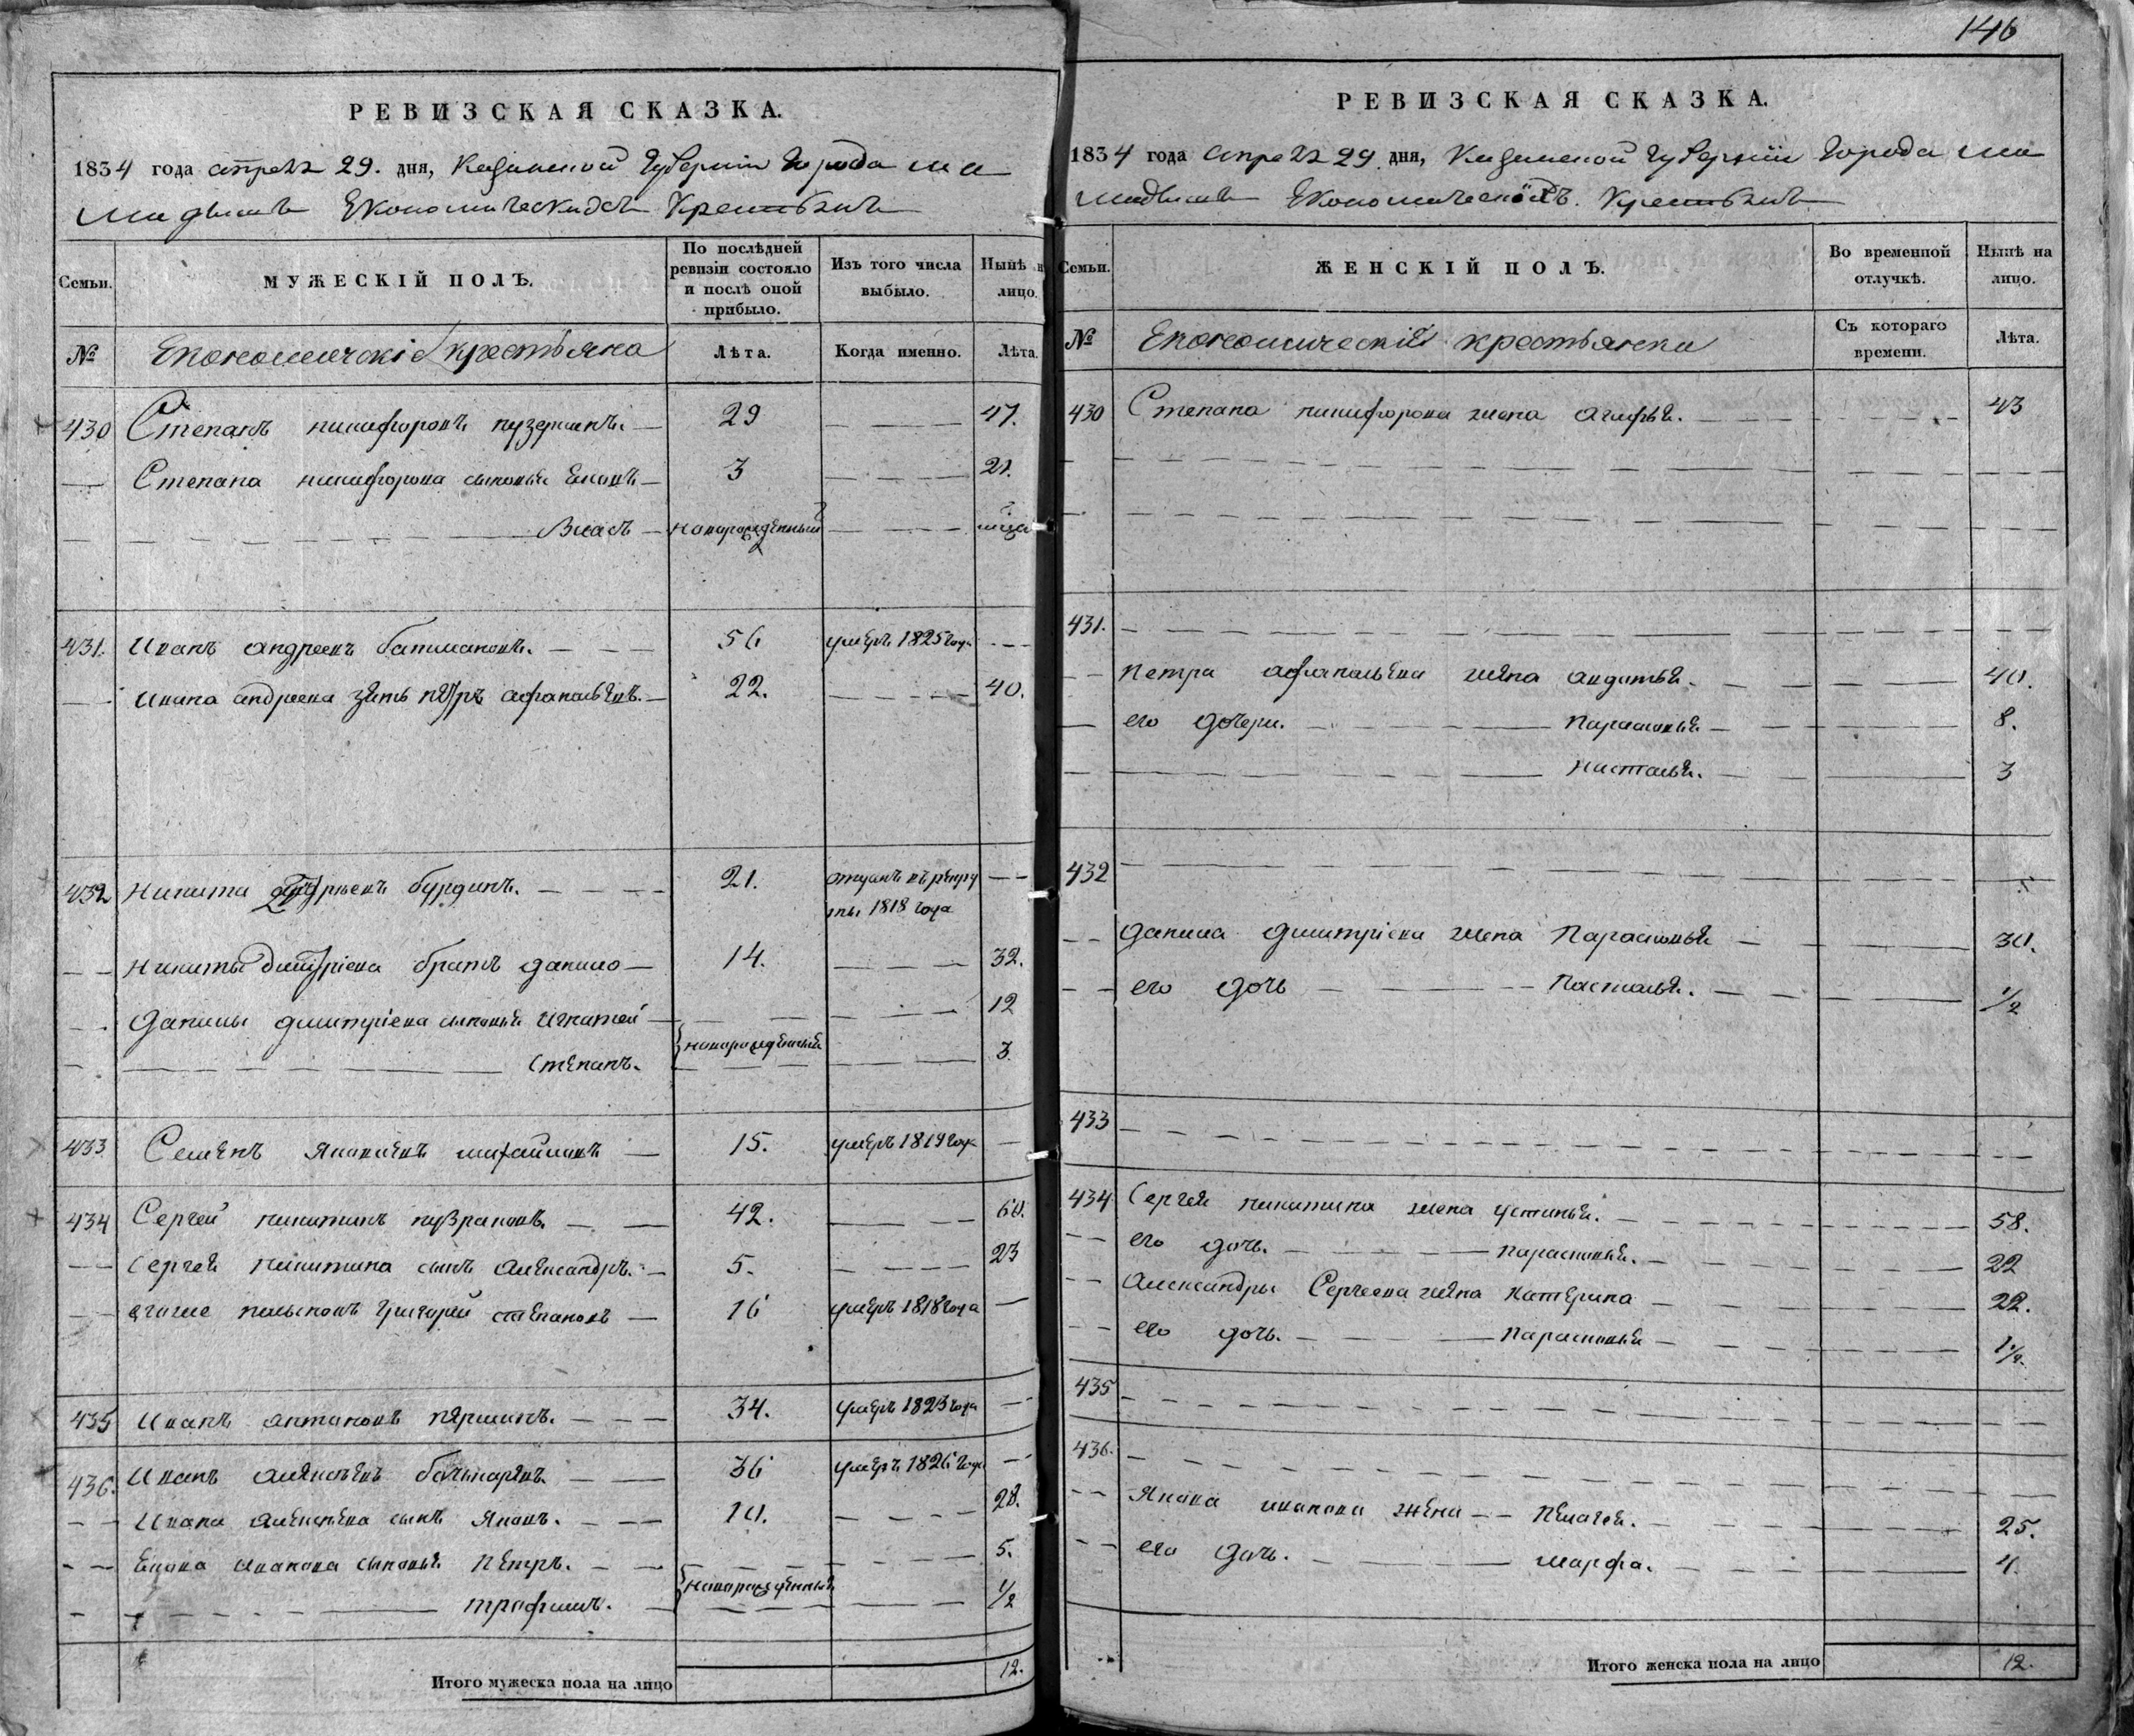 146
РЕВИЗСКАЯ СКАЗКА.
1834 года апреля 29. дня, Казанской Губернии Города Ма
мадыша Економическихъ Крестьянъ
Семьи.
МУЖЕСКІЙ ПОЛЪ.
По послѣдней ревизіи состояло и послѣ оной прибыло.
Изъ того числа выбыло.
Нынѣ на лицо.
№
Економическіе крестьяна
Лѣта.
Когда именно.
Лѣта.
430 Степанъ никифоровъ 29 47.
Степана никифорова сыновья 3 21.
Власъ новорожденный
431. Иванъ андреевъ 56 умеръ 1825 года
Ивана андреева зять пётръ афанасьевъ. 22. 40.
432 Никита бурдинъ. 21. отданъ въ рекру
ты 1818 года
Никиты дмитріева братъ данило 14. 32.
Данилы дмитріева сыновья игнатей 12
новорожденныя
Степанъ. 3.
433 Семенъ 15. умеръ 1819 года
434 Сергей никитинъ 42. 60.
Сергея никитина сынъ александръ. 5. 23
григорей степановъ 16 умеръ 1818 года
435 Иванъ антоновъ 34. умеръ 1823 года
436. Иванъ алексѣевъ 36 умеръ 1826 года
Ивана алексѣева сынъ Яковъ. 10. 28.
Якова иванова сыновья пётръ. 5.
новорожденныя
трофимъ. 1/2
Итого мужеска пола на лицо 12.
РЕВИЗСКАЯ СКАЗКА.
1834 года апреля 29. дня, Казанской Губерніи Города Ма
мадыша Економическихъ. Крестьянъ
Семьи.
ЖЕНСКІЙ ПОЛЪ.
Во временной отлучкѣ.
Нынѣ на лицо.
№
Економическія крестьянки
Съ котораго времени.
Лѣта.
430 Степана никифорова жена агафья. 43
431.
Петра афанасьева жена авдотья. 40.
его дочери. парасковья 8.
настасья. 3
432
Данила дмитріева жена Парасковья 30.
его дочь настасья. 1/2
433
434 Сергея никитина жена устинья. 58.
его дочь. парасковья. 22
Александры Сергеева жена катерина 22.
его дочь. парасковья 1 1/2.
435
436.
Якова иванова жена пелагея. 25.
его дочь. марфа. 4.
Итого женска пола на лицо 12.